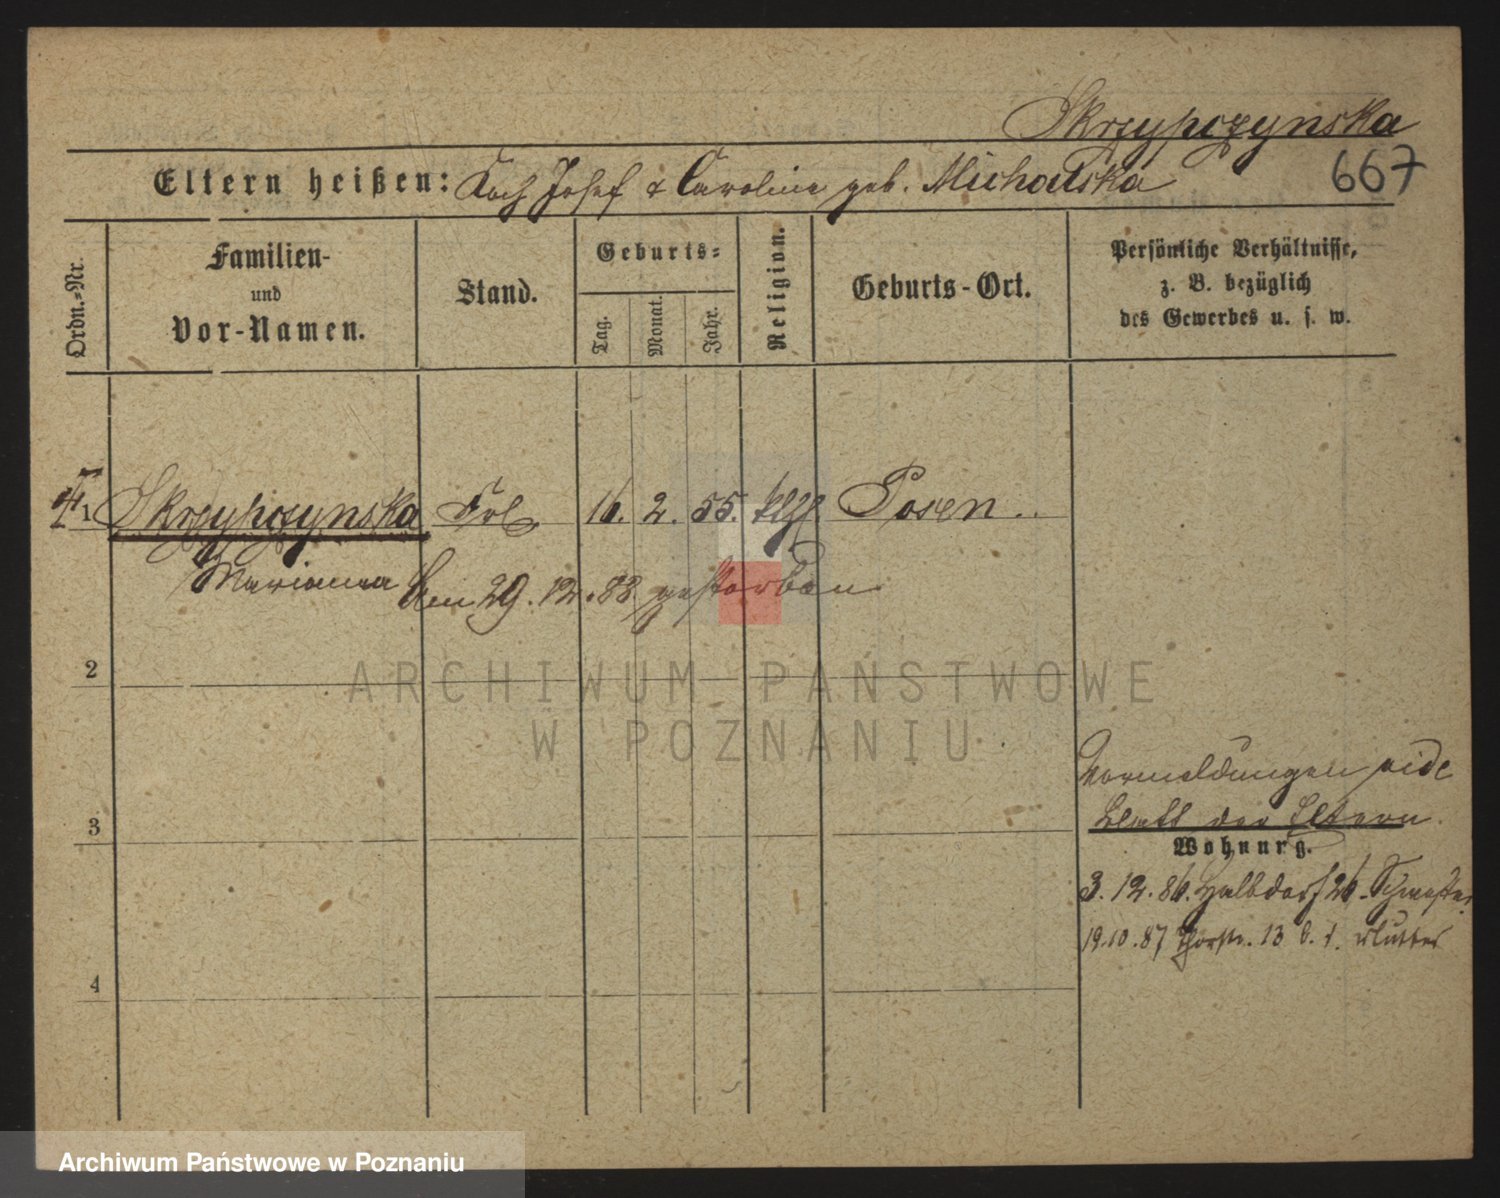 Skrzypczynska
667
Eltern heißen: Koch Josef & Caroline geb. Michalska
Ordn.-Nr.
Familien-
und
Vor-Namen.
Stand.
Geburts-
Tag.
Monat.
Jahr.
Religion.
Geburts-Ort.
Persönliche Verhältnisse,
z. B. bezüglich
des Gewerbes u. s. w.
1 Skrzypczynska Frl. 16. 2. 55. Posen
Marianna Am 29. 12. 88 gestorben
2
ARCHIWUM PAŃSTWOWE
W POZNANIU
Vormeldungen vide
Blatt der Eltern.
3
Wohnung.
3. 12. 86. Halbdorf 26. Schwester
19.10.87 Thorstr. 13 b. d. Mutter
4
Archiwum Państwowe w Poznaniu